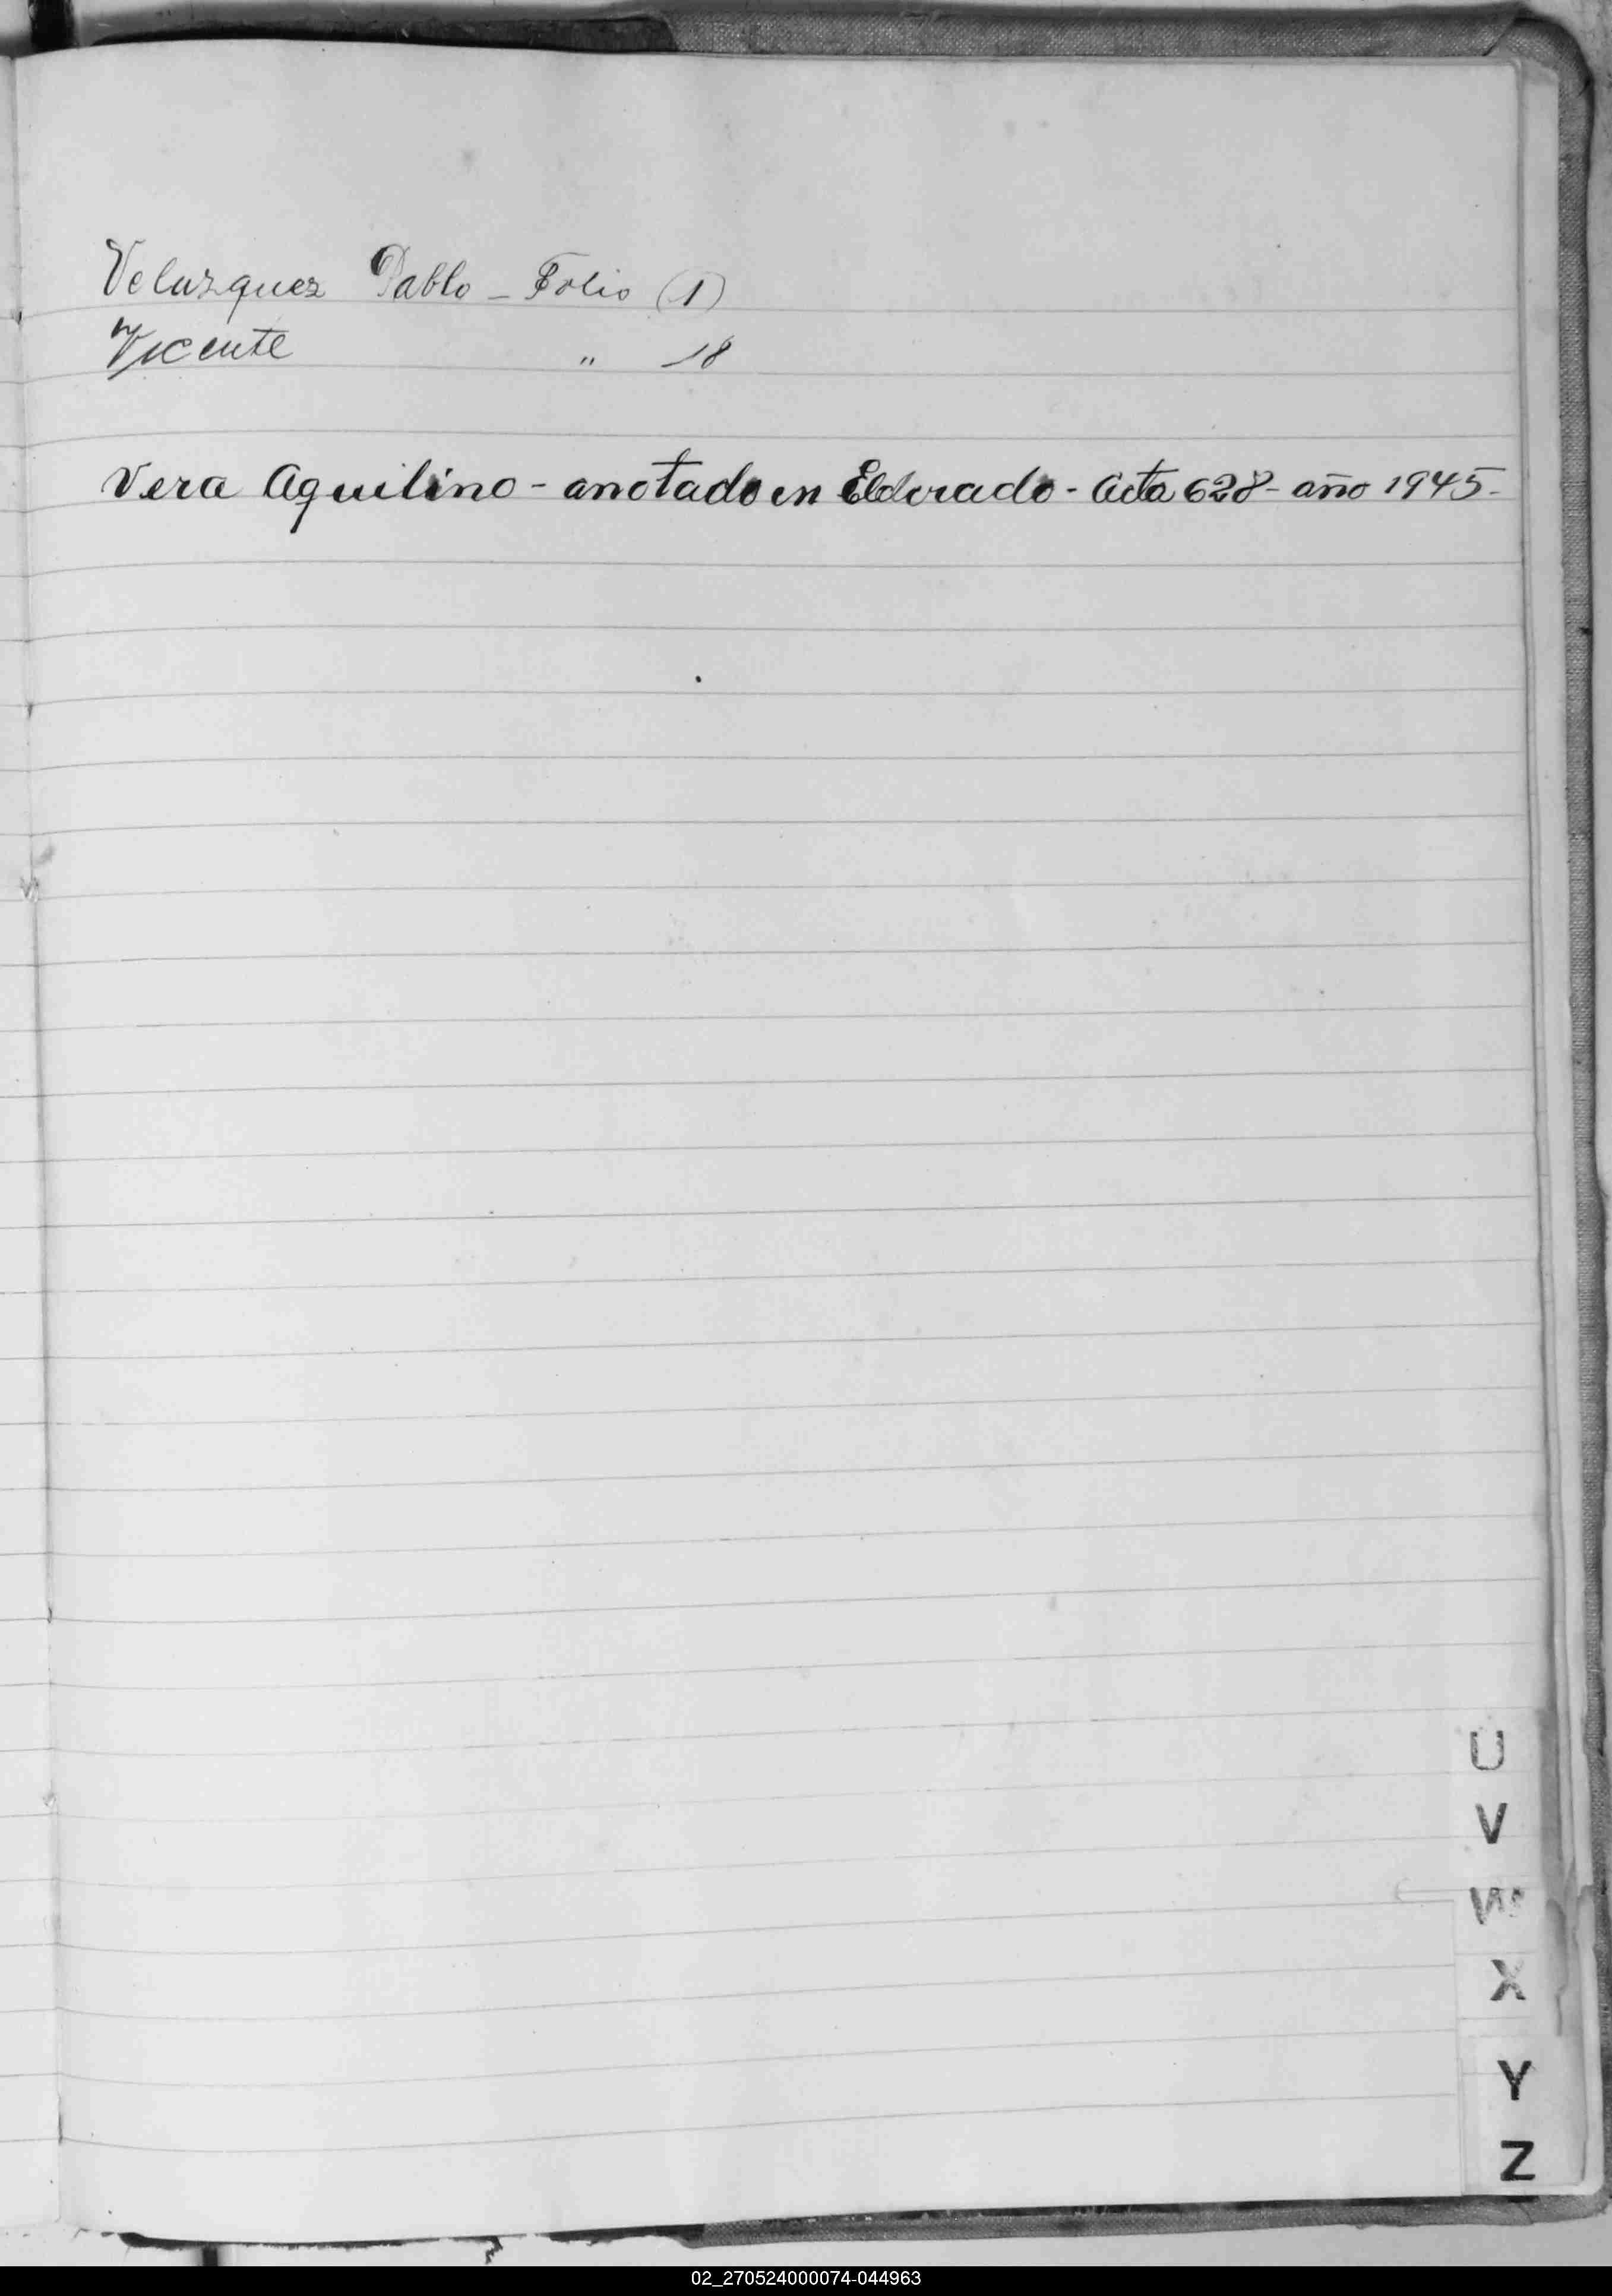 Velazquez Pablo - Folio (1)
Vicente " 18
Vera Aquilino - anotado en Eldorado - Acta 628 - año 1945 -
U
V
W
X
Y
Z
02_270524000074-044963